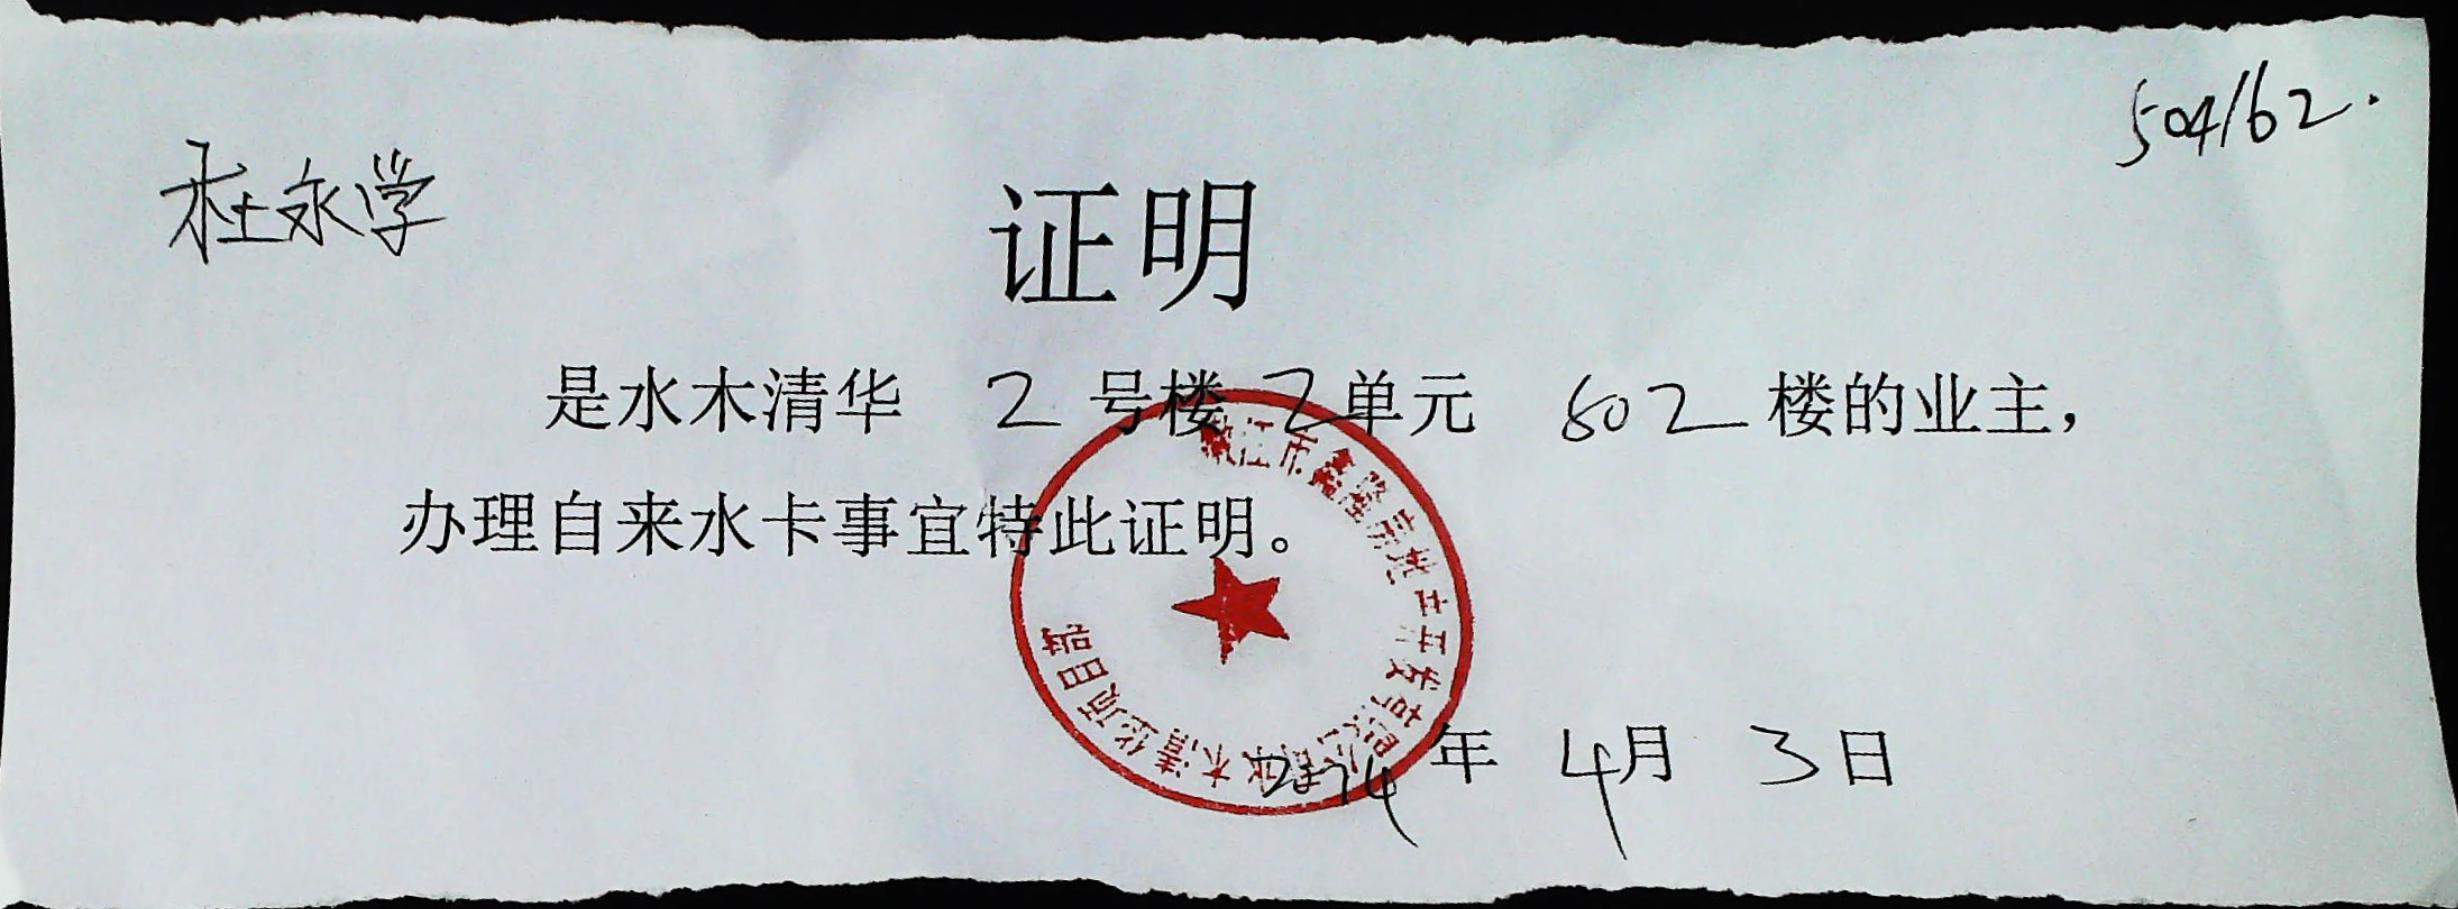 504162.
杜永学
证明
是水木清华 2 号楼 2 单元 802 楼的业主，
办理自来水卡事宜特此证明。
江市鑫隆房地产开发有限公司水木清华项目部
2014 年 4月 3日